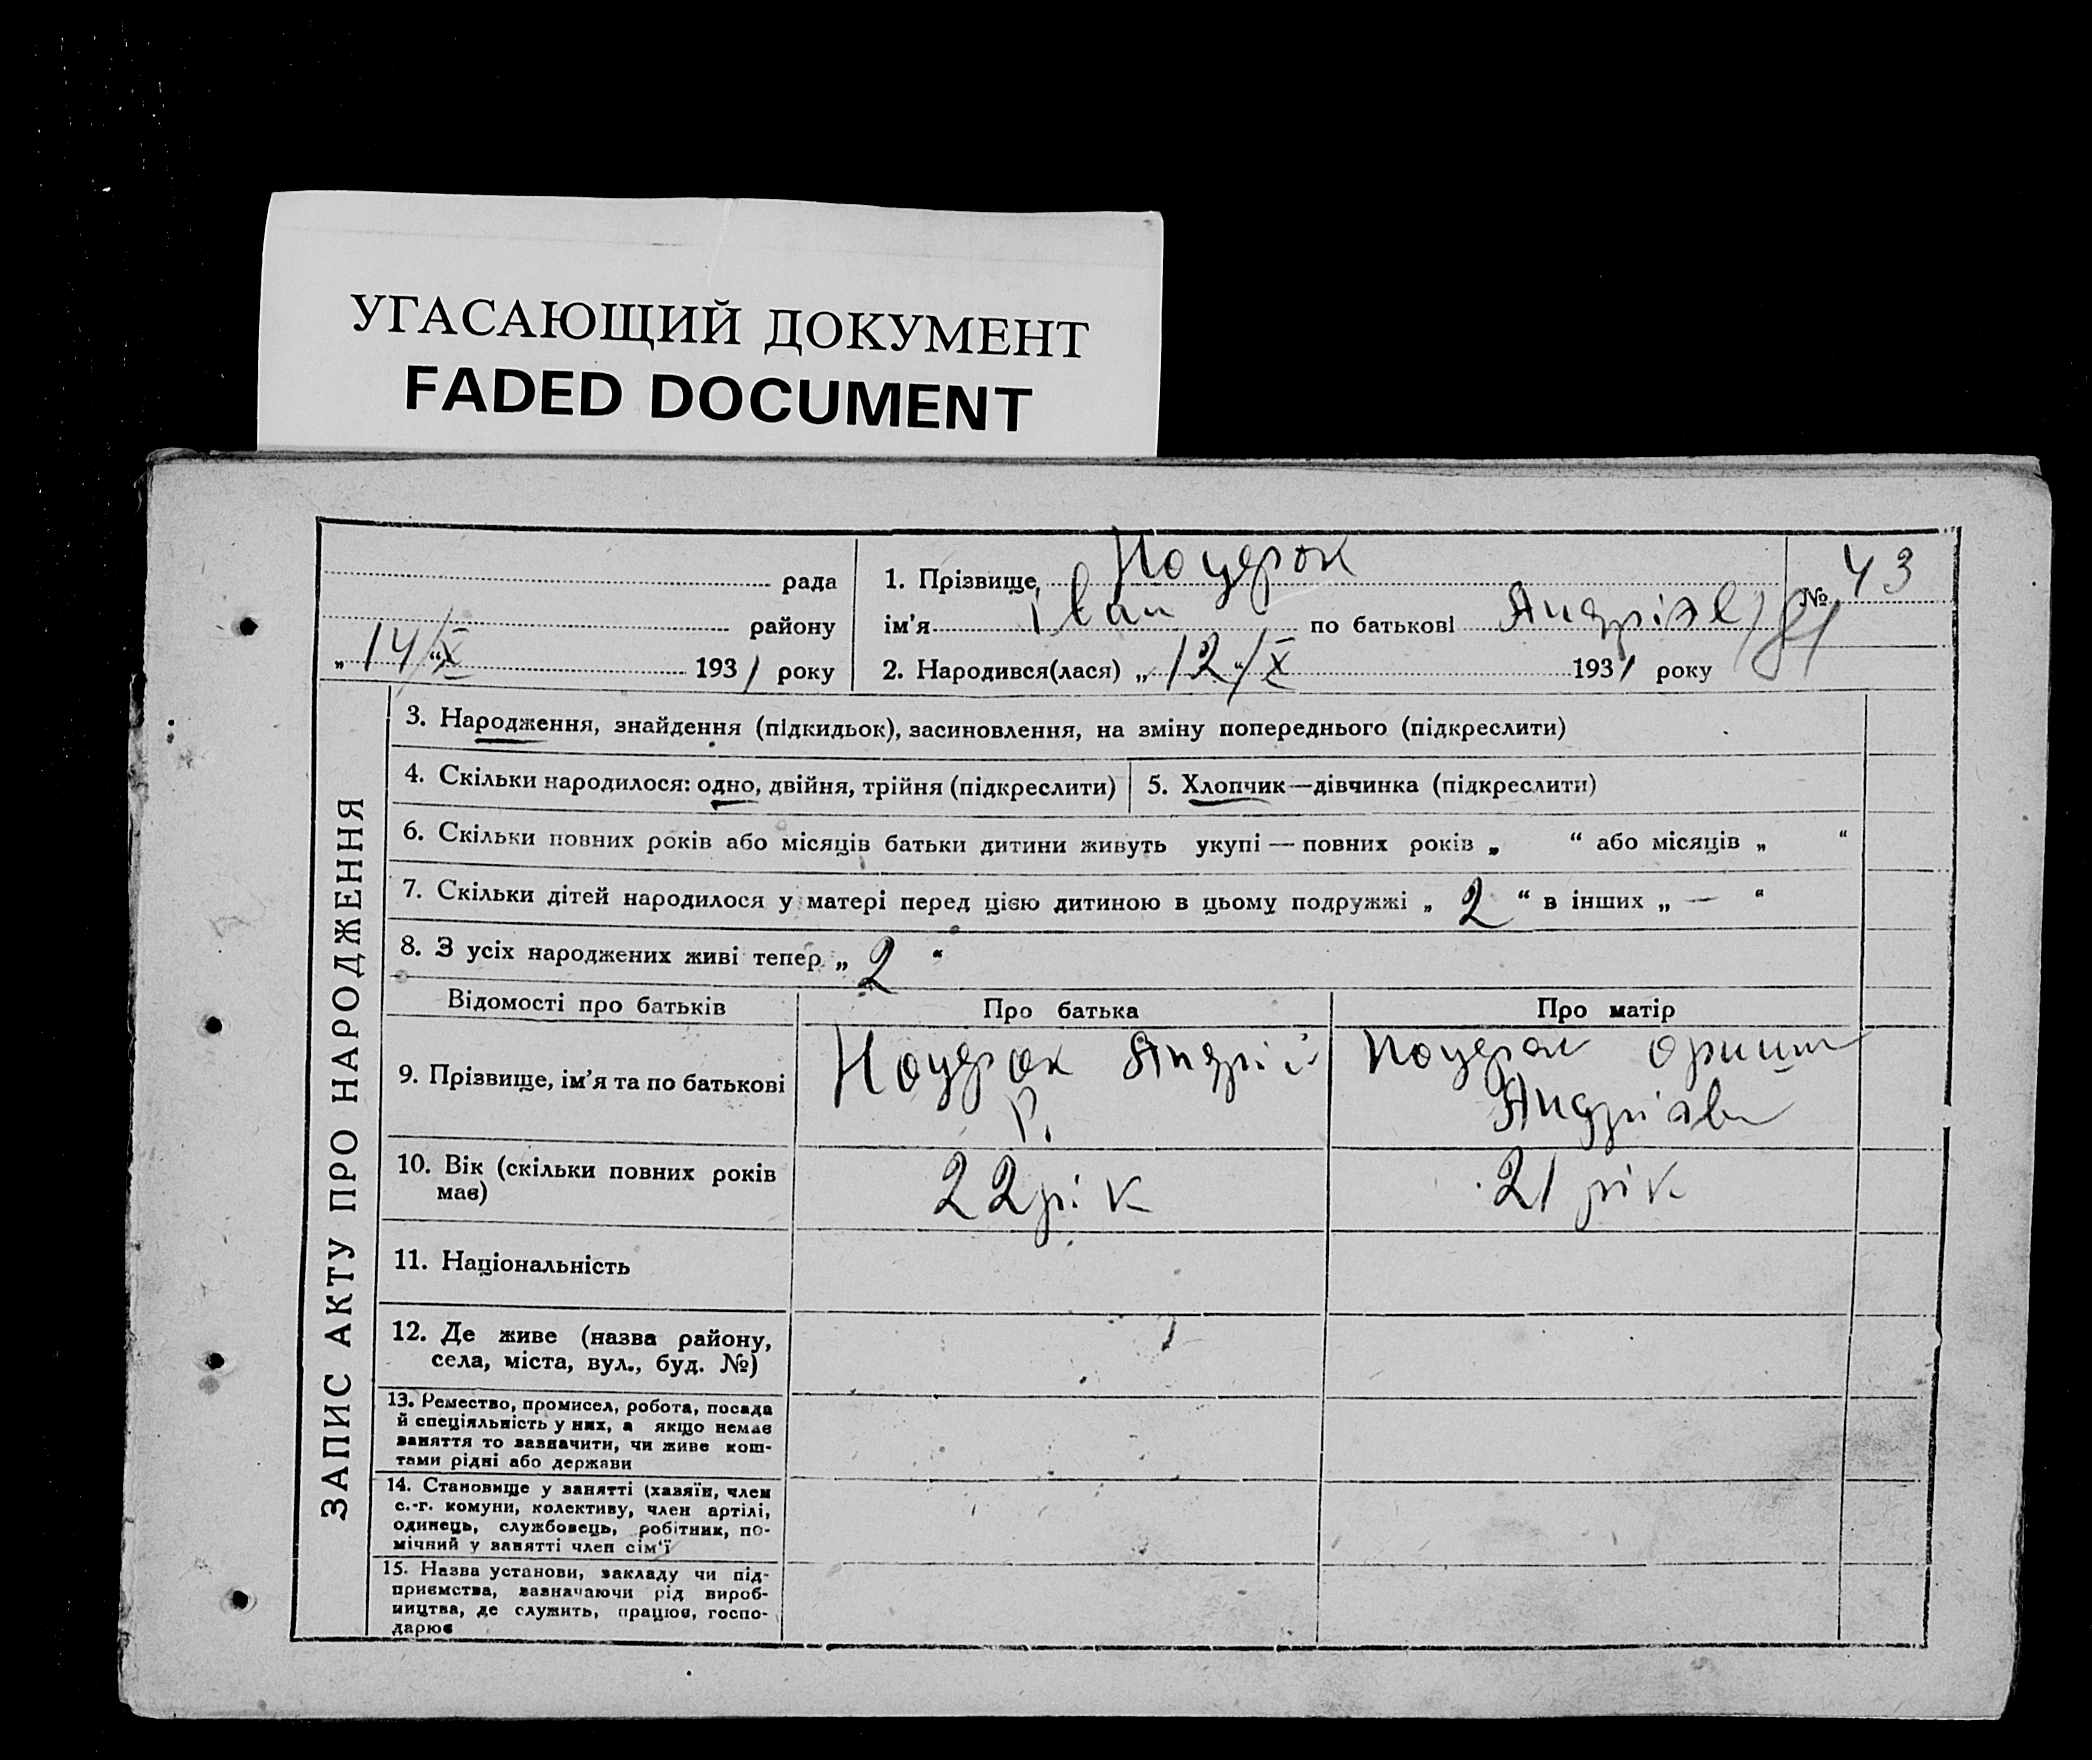 УГАСАЮЩИЙ ДОКУМЕНТ
FADED DOCUMENT
рада
району
„ 14/X “ 1931 року
1. Прізвище
ім'я Іван по батькові
2. Народився(лася) „ 12/X “ 1931 року
№ 43
ЗАПИС АКТУ ПРО НАРОДЖЕННЯ
3. Народження, знайдення (підкидьок), засиновлення, на зміну попереднього (підкреслити)
4. Скільки народилося: одно, двійня, трійня (підкреслити)
5. Хлопчик—дівчинка (підкреслити)
6. Скільки повних років або місяців батьки дитини живуть укупі — повних років „ “ або місяців „ “
7. Скільки дітей народилося у матері перед цією дитиною в цьому подружжі „ 2 “ в інших „ — “
8. З усіх народжених живі тепер „ 2 “
Відомості про батьків
Про батька
Про матір
9. Прізвище, ім'я та по батькові
Андрій
Р.
10. Вік (скільки повних років
має)
22 рік
21 рік
11. Національність
12. Де живе (назва району,
села, міста, вул., буд. №)
13. Ремество, промисел, робота, посада
й спеціяльність у них, а якщо немає
заняття то зазначити, чи живе кош-
тами рідні або держави
14. Становище у занятті (хазяїн, член
с.-г. комуни, колективу, член артілі,
одинець, службовець, робітник, по-
мічний у занятті член сім'ї
15. Назва установи, закладу чи під-
приємства, зазначаючи рід вироб-
ництва, де служить, працює, госпо-
дарює